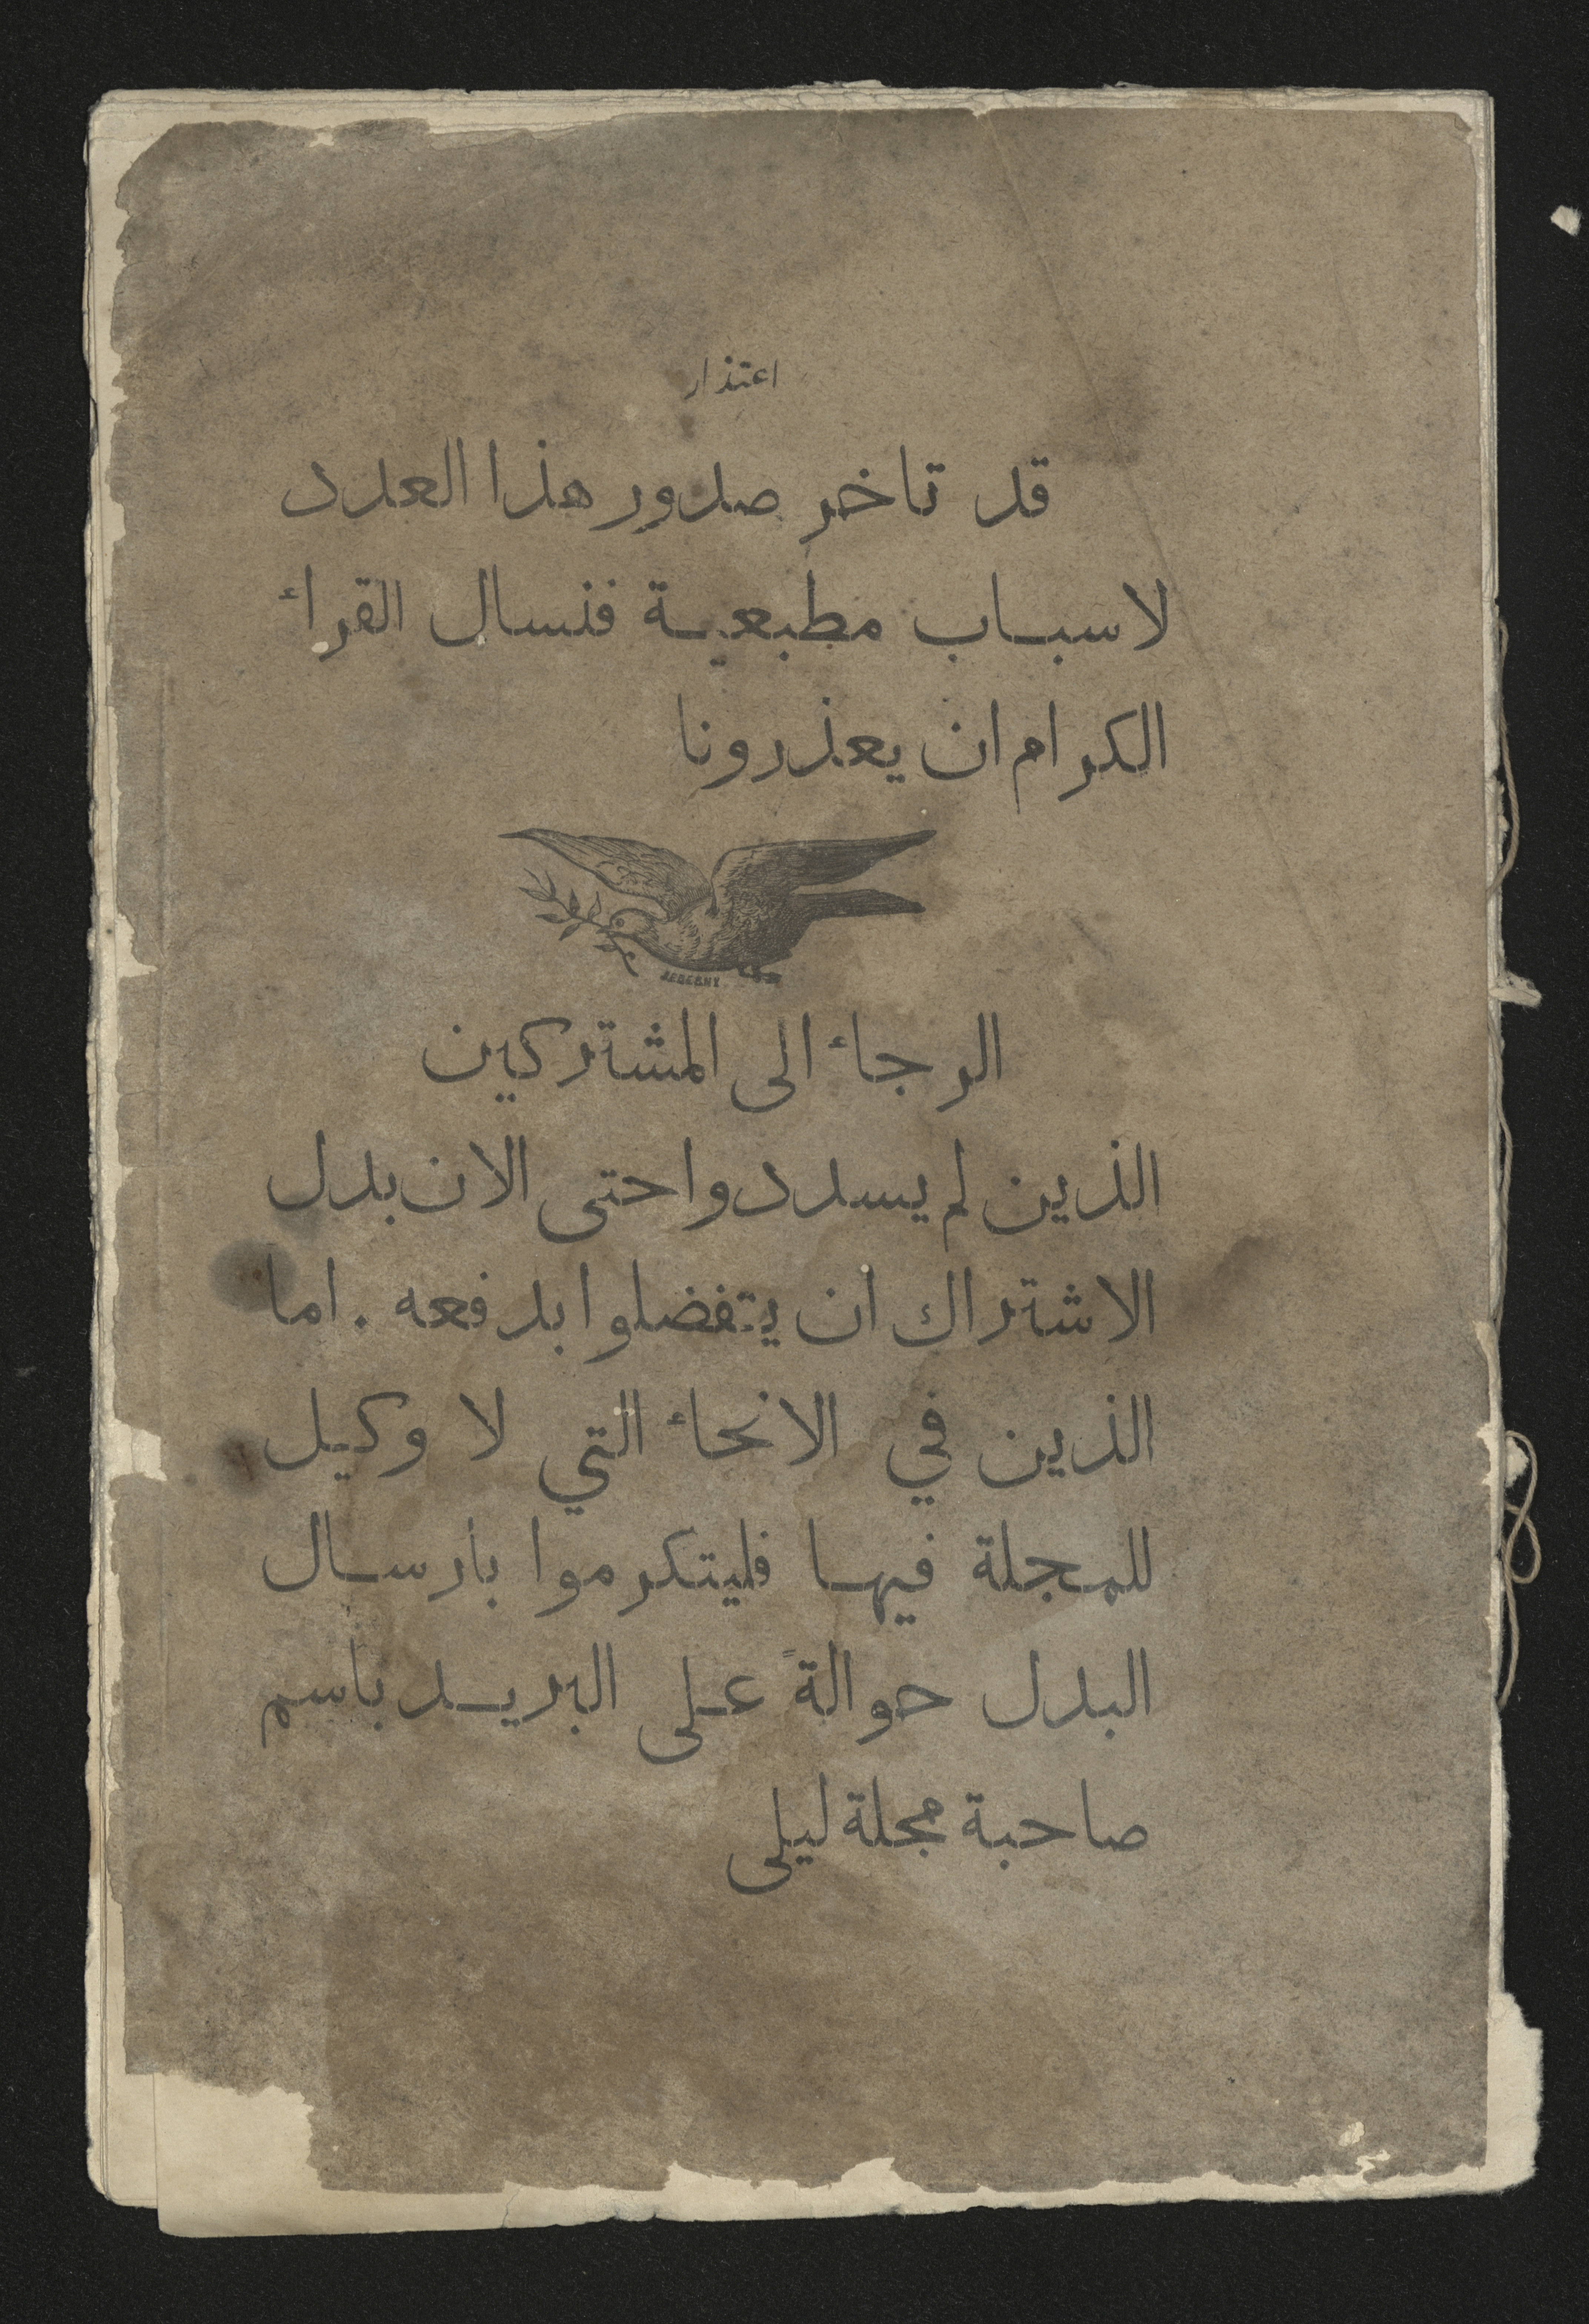 اعتذار
قد تاخر صدور هذا العدد
لاسباب مطبعية فنسال القراء
الكرام ان يعذرونا
الرجاء الى المشتركين
الذين لم يسددوا حتى الان بدل
الاشتراك ان يتفضلوا بدفعه . اما
الذين في الانحاء التي لا وكيل
للمجلة فيها فليتكرموا بارسال
البدل حوالةً على البريد باسم
صاحبة مجلة ليلى